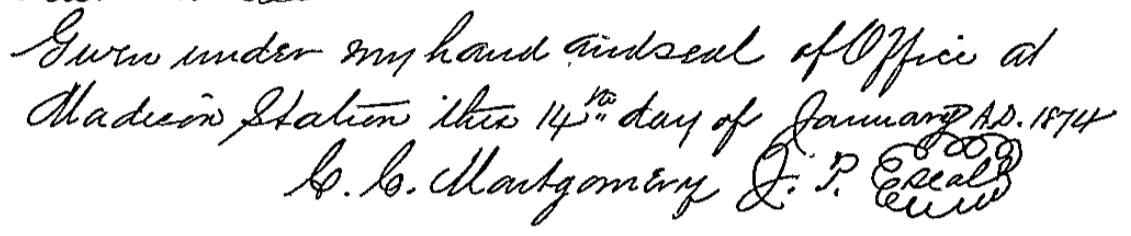 Given under my hand and seal of Office at
Madison Station this 14th day of January A.D. 1874
C. C. Montgomery J. P. Seal